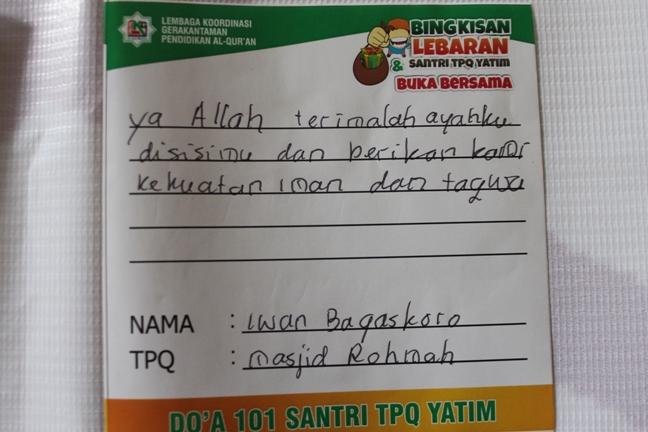 LEMBAGA KOORDINASI
GERAKANTAMAN
PENDIDIKAN AL-QUR'AN
BINGKISAN
LEBARAN
& SANTRI TPQ YATIM
BUKA BERSAMA
ya Allah terimalah ayahku
disisimu dan berikan kami
kekuatan iman dan taquwa
NAMA : Iwan Bagaskoro
TPQ : masjid Rohmah
DO'A 101 SANTRI TPQ YATIM